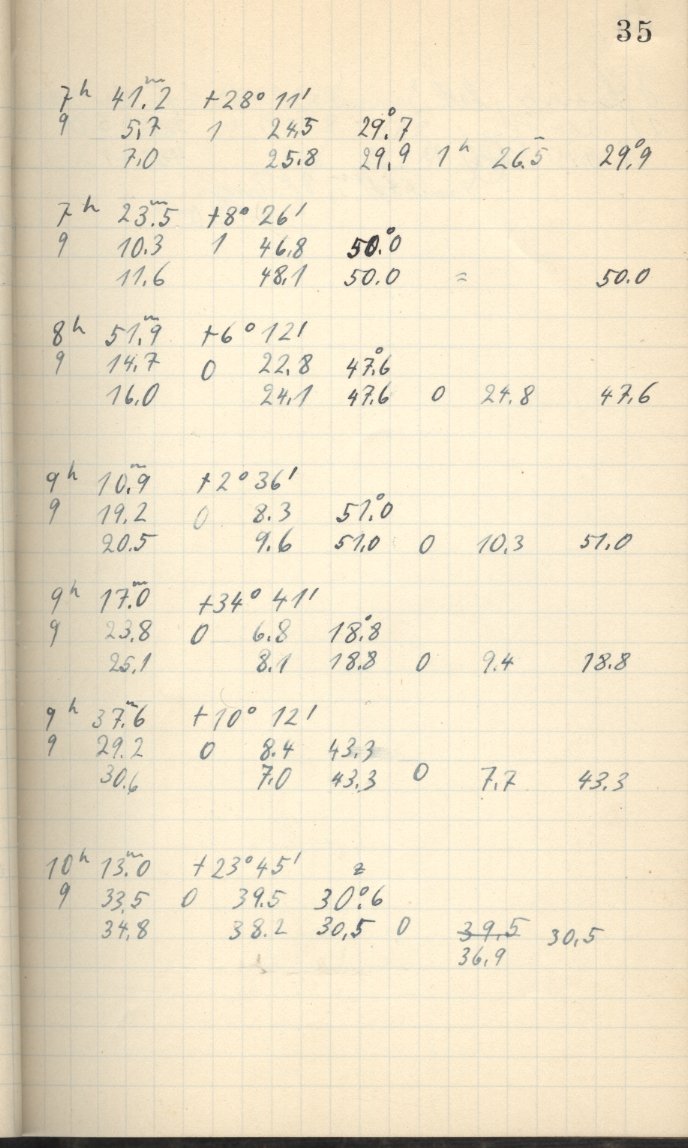 35
7h 41.2m +28° 11'
9 5,7 1 24,5 29.°7
7,0 25.8 29,9 1h 26.5 29.°9
7h 23.5m +8° 26'
9 10.3 1 46,8 50.°0
11,6 48,1 50.0 = 50.0
8h 51,9m +6° 12'
9 14,7 0 22,8 47.°6
16,0 24,1 47.6 0 24.8 47,6
9h 10,9m +2° 36'
9 19,2 0 8.3 51.°0
20.5 9.6 51,0 0 10,3 51,0
9h 17.0m +34° 41'
9 23,8 0 6.8 18.°8
25,1 8.1 18.8 0 9.4 18.8
9h 37.6m +10° 12'
9 29.2 0 8.4 43.3
30,6 7.0 43.3 0 7,7 43.3
10h 13.0m +23° 45' z
9 33,5 0 39.5 30.°6
34,8 38.2 30,5 0 39,5 30,5
36,9